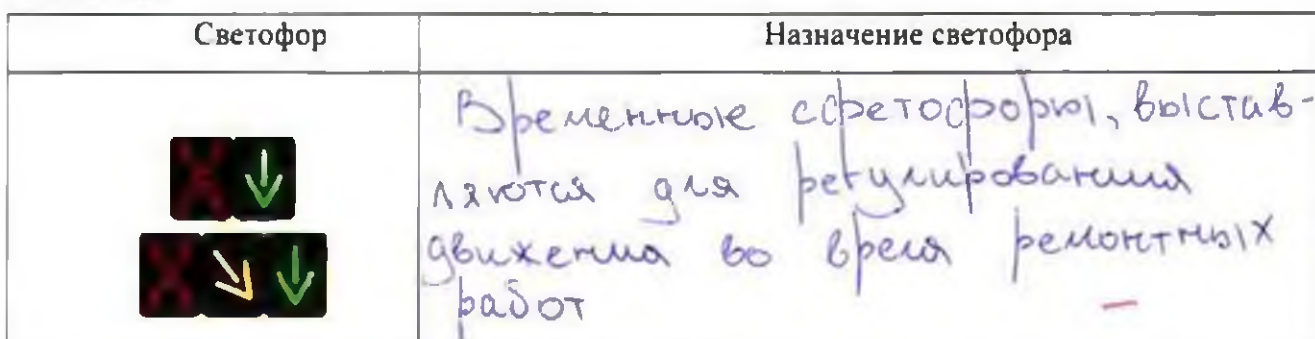 Светофор
Назначение светофора
Временные ссретофоры, выстав-
ляются для регулирования
движения во время ремонтных
работ